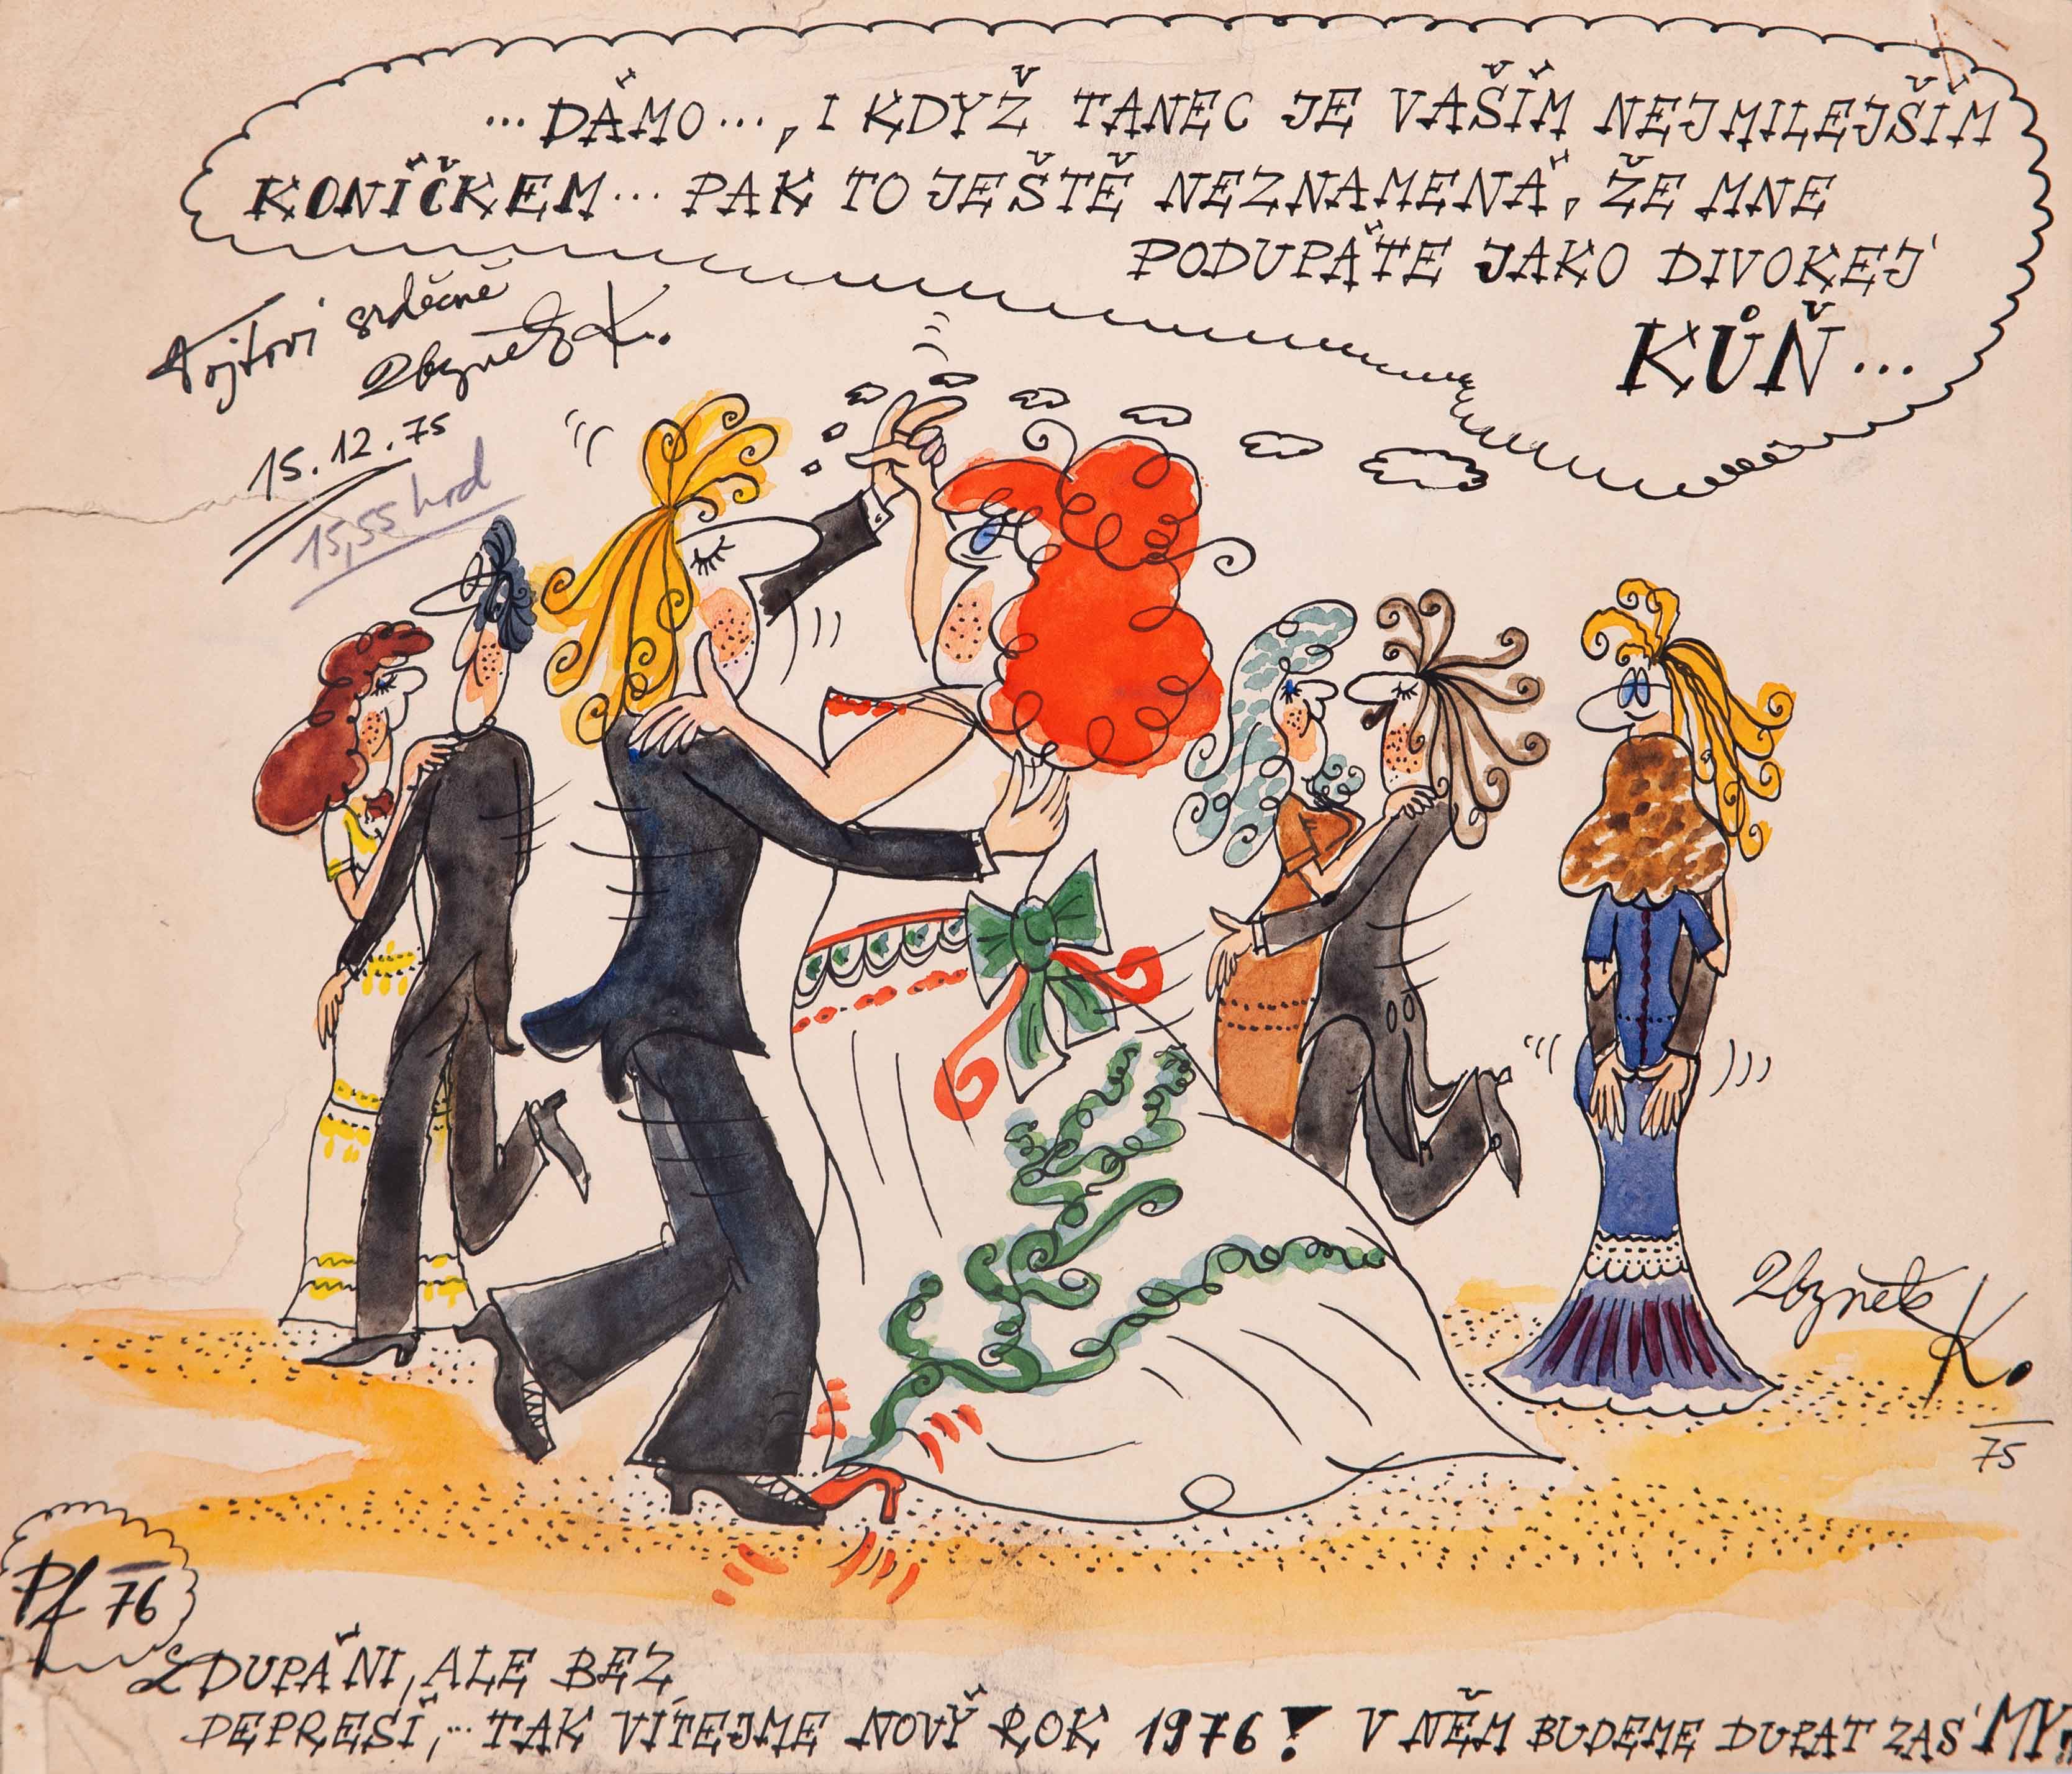 ...DÁMO..., I KDYŽ TANEC JE VAŠÍM NEJMILEJŠÍM
KONÍČKEM... PAK TO JEŠTĚ NEZNAMENÁ, ŽE MNE
PODUPÁTE JAKO DIVOKEJ
KŮŇ...
Vojtovi srdečně
Zbyněk K.
15.12.75
15,55 hod
Zbyněk K.
75
Pf 76
ZDUPÁNI, ALE BEZ
DEPRESÍ,... TAK VÍTEJME NOVÝ ROK 1976! V NĚM BUDEME DUPAT ZAS' MY!